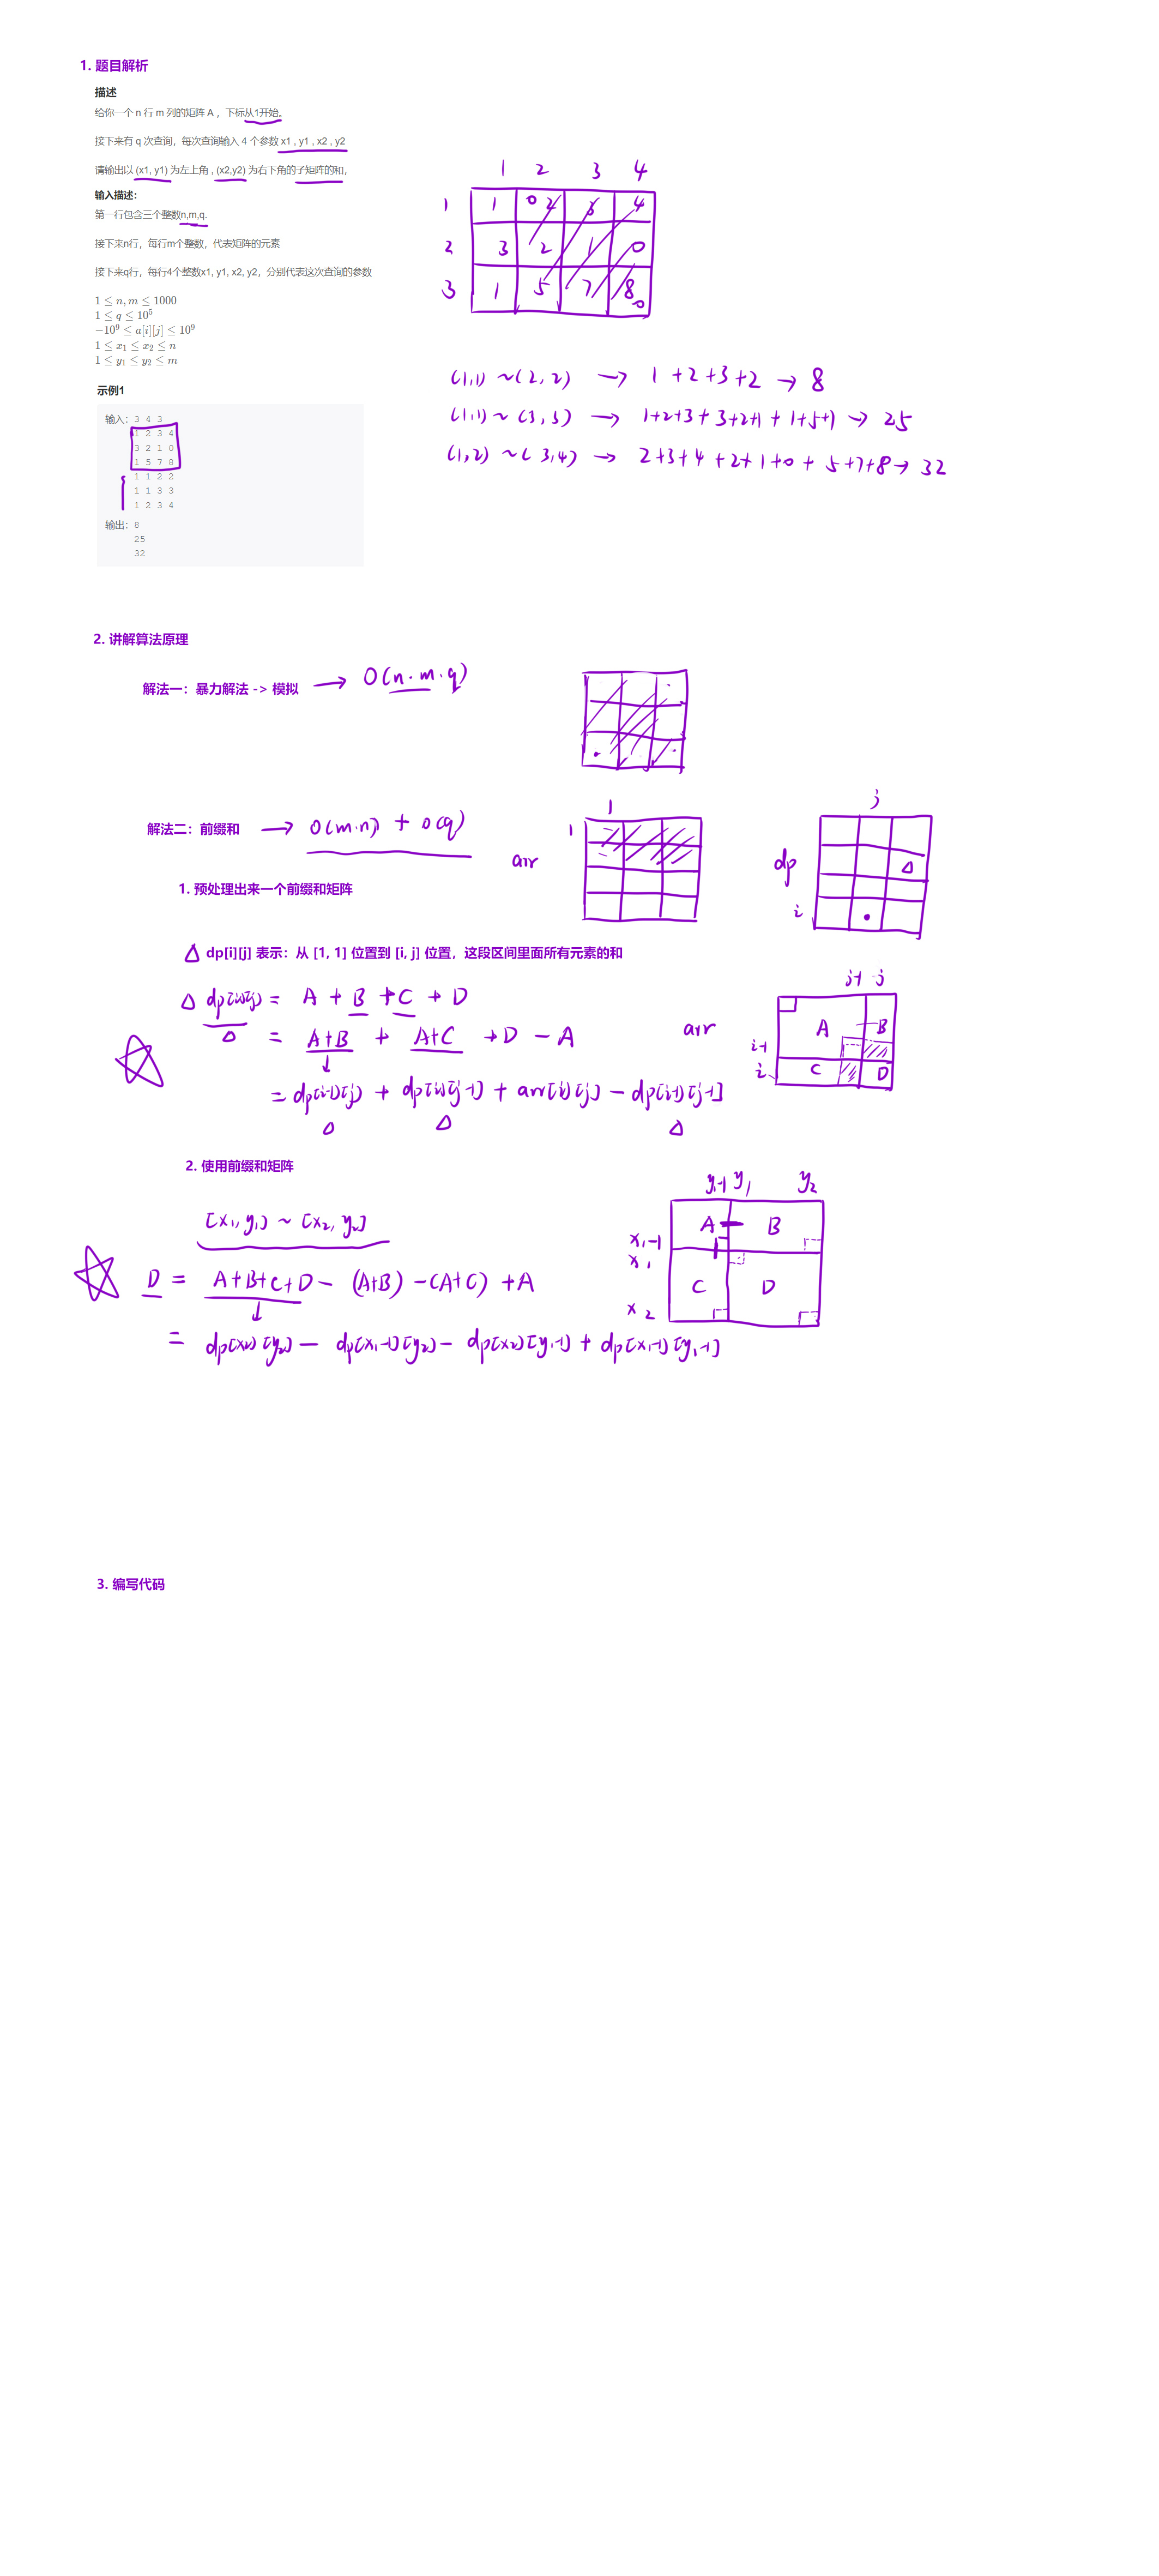 1. 题目解析
描述
给你一个 n 行 m 列的矩阵 A ，下标从1开始。
接下来有 q 次查询，每次查询输入 4 个参数 x1 , y1 , x2 , y2
请输出以 (x1, y1) 为左上角 , (x2,y2) 为右下角的子矩阵的和，
输入描述：
第一行包含三个整数n,m,q.
接下来n行，每行m个整数，代表矩阵的元素
接下来q行，每行4个整数x1, y1, x2, y2，分别代表这次查询的参数
1 ≤ n, m ≤ 1000
1 ≤ q ≤ 10⁵
−10⁹ ≤ a[i][j] ≤ 10⁹
1 ≤ x₁ ≤ x₂ ≤ n
1 ≤ y₁ ≤ y₂ ≤ m
示例1
输入：3 4 3
1 2 3 4
3 2 1 0
1 5 7 8
1 1 2 2
1 1 3 3
1 2 3 4
输出：8
25
32
1 2 3 4
1 1 0 2 3 4
2 3 2 1 0
3 1 5 7 8 0
(1,1) ~ (2, 2) → 1 + 2 + 3 + 2 → 8
(1,1) ~ (3, 3) → 1+2+3 + 3+2+1 + 1+5+7 → 25
(1,2) ~ (3,4) → 2+3+4 + 2+1+0 + 5+7+8 → 32
2. 讲解算法原理
解法一：暴力解法 -> 模拟 → O(n·m·q)
解法二：前缀和 → O(m·n) + O(q)
1
1
arr
j
dp
i
1. 预处理出来一个前缀和矩阵
△ dp[i][j] 表示：从 [1, 1] 位置到 [i, j] 位置，这段区间里面所有元素的和
△ dp[i][j] = A + B + C + D
= A+B + A+C + D - A
= dp[i-1][j] + dp[i][j-1] + arr[i][j] - dp[i-1][j-1]
arr
j-1 j
A B
i-1
i C D
2. 使用前缀和矩阵
[x₁, y₁] ~ [x₂, y₂]
D = A+B+C+D - (A+B) - (A+C) + A
= dp[x₂][y₂] - dp[x₁-1][y₂] - dp[x₂][y₁-1] + dp[x₁-1][y₁-1]
y₁-1 y₁ y₂
A B
x₁-1
x₁
C D
x₂
3. 编写代码